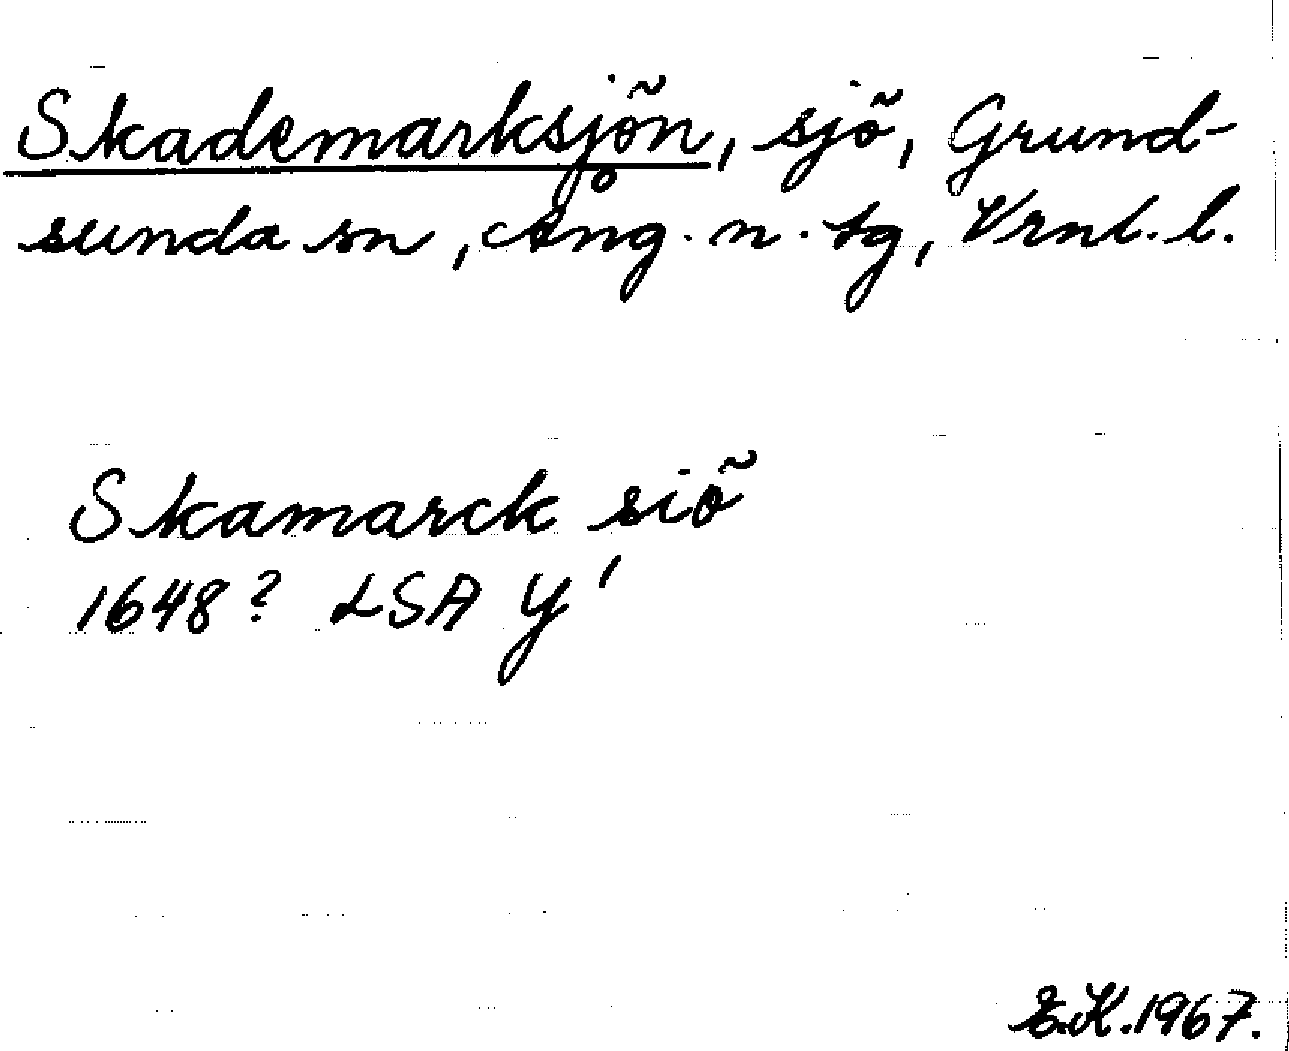 Skademarksjön, sjö, Grund-
sunda sn, Ång. n. tg, Vrnl. l.
Skamarck siö
1648? LSA Y'
E.K. 1967.